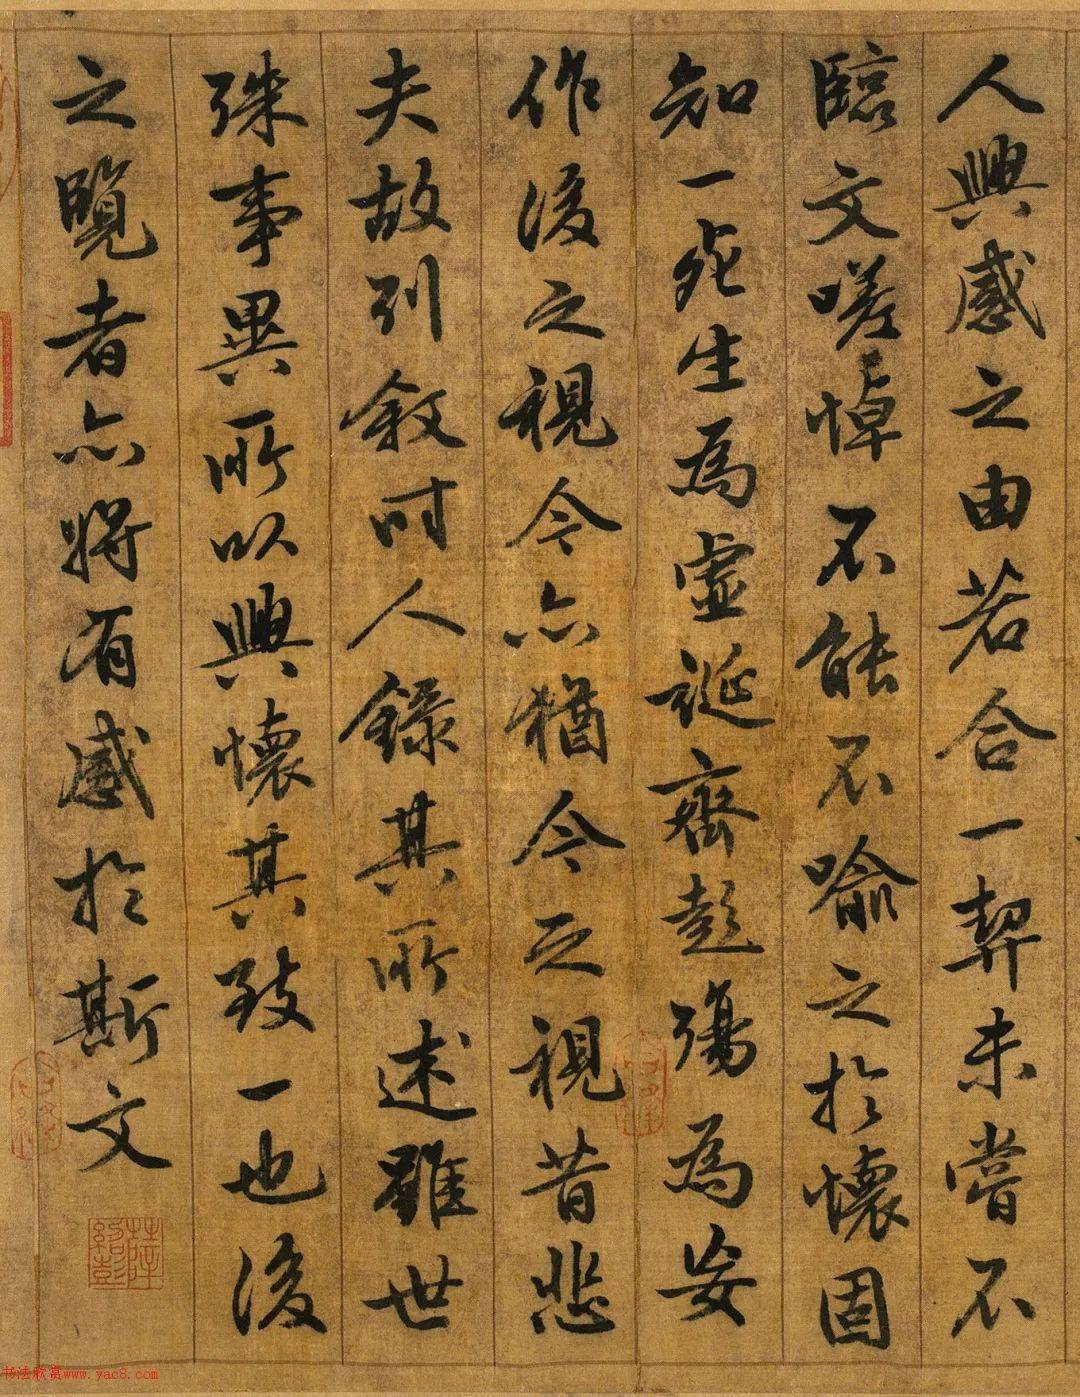 人興感之由若合一契未嘗不
臨文嗟悼不能不喻之於懷固
知一死生為虛誕齊彭殤為妄
作後之視今亦猶今之視昔悲
夫故列敘時人錄其所述雖世
殊事異所以興懷其致一也後
之覽者亦將有感於斯文
书法欣赏www.yac8.com